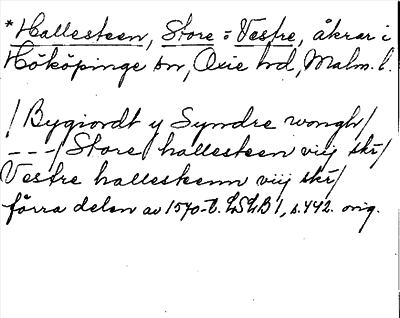 *Hallesteen, Store o Vestre, åkrar i
Hököpinge sn, Oxie hd, Malm. l.
/Bygiordt y Syndre wongh/
---/Store hallesteen viij skr/
Vestre hallesteenn viij skr/
förra delen av 1570-t. LSLB 1, s. 442. orig.